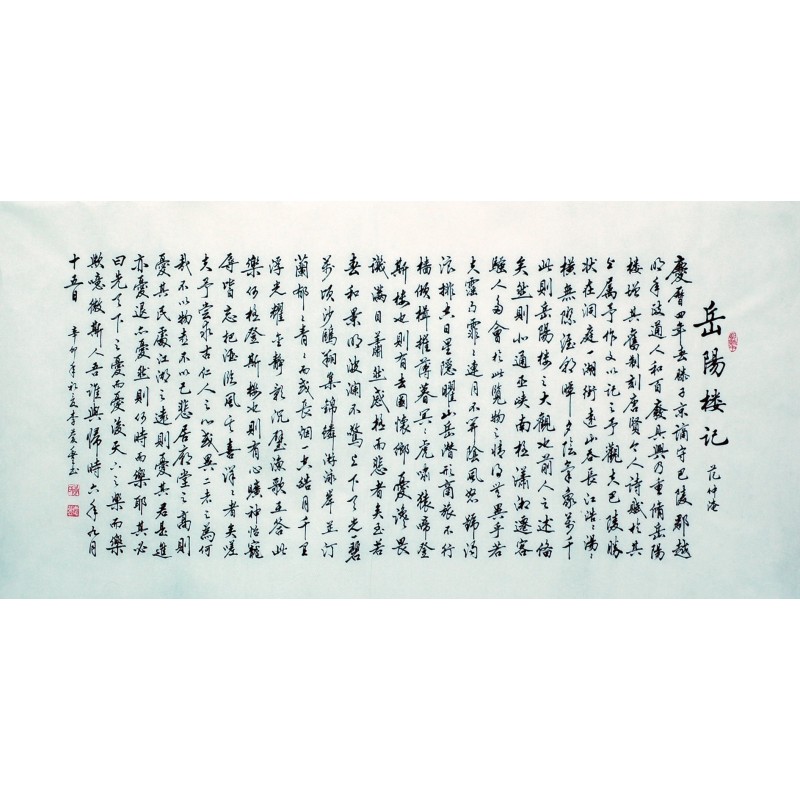 岳陽楼记
范仲淹
慶曆四年春滕子京謫守巴陵郡越
明年政通人和百廢具興乃重脩岳陽
楼增其舊制刻唐賢今人詩賦於其
上属予作文以記之予觀夫巴陵勝
状在洞庭一湖銜遠山吞長江浩〻湯〻
橫無際涯朝暉夕陰氣象萬千
此則岳陽楼之大觀也前人之述備
矣然則北通巫峡南極瀟湘遷客
騷人多會於此覽物之情得無異乎若
夫霪雨霏〻連月不開陰風怒號濁
浪排空日星隱曜山岳潛形商旅不行
檣傾楫摧薄暮冥〻虎嘯猿啼登
斯楼也則有去國懷鄉憂讒畏
譏滿目蕭然感極而悲者矣至若
春和景明波瀾不驚上下天光一碧
萬頃沙鷗翔集錦鱗游泳岸芷汀
蘭郁〻青〻而或長烟一空皓月千里
浮光耀金静影沉璧漁歌互答此
樂何極登斯楼也則有心曠神怡寵
辱皆忘把酒临風其喜洋〻者矣嗟
夫予嘗求古仁人之心或異二者之為何
哉不以物喜不以己悲居廟堂之高則
憂其民處江湖之遠則憂其君是進
亦憂退亦憂然則何時而樂耶其必
曰先天下之憂而憂後天下之樂而樂
歟噫微斯人吾誰與歸時六年九月
十五日 辛卯年初夏李